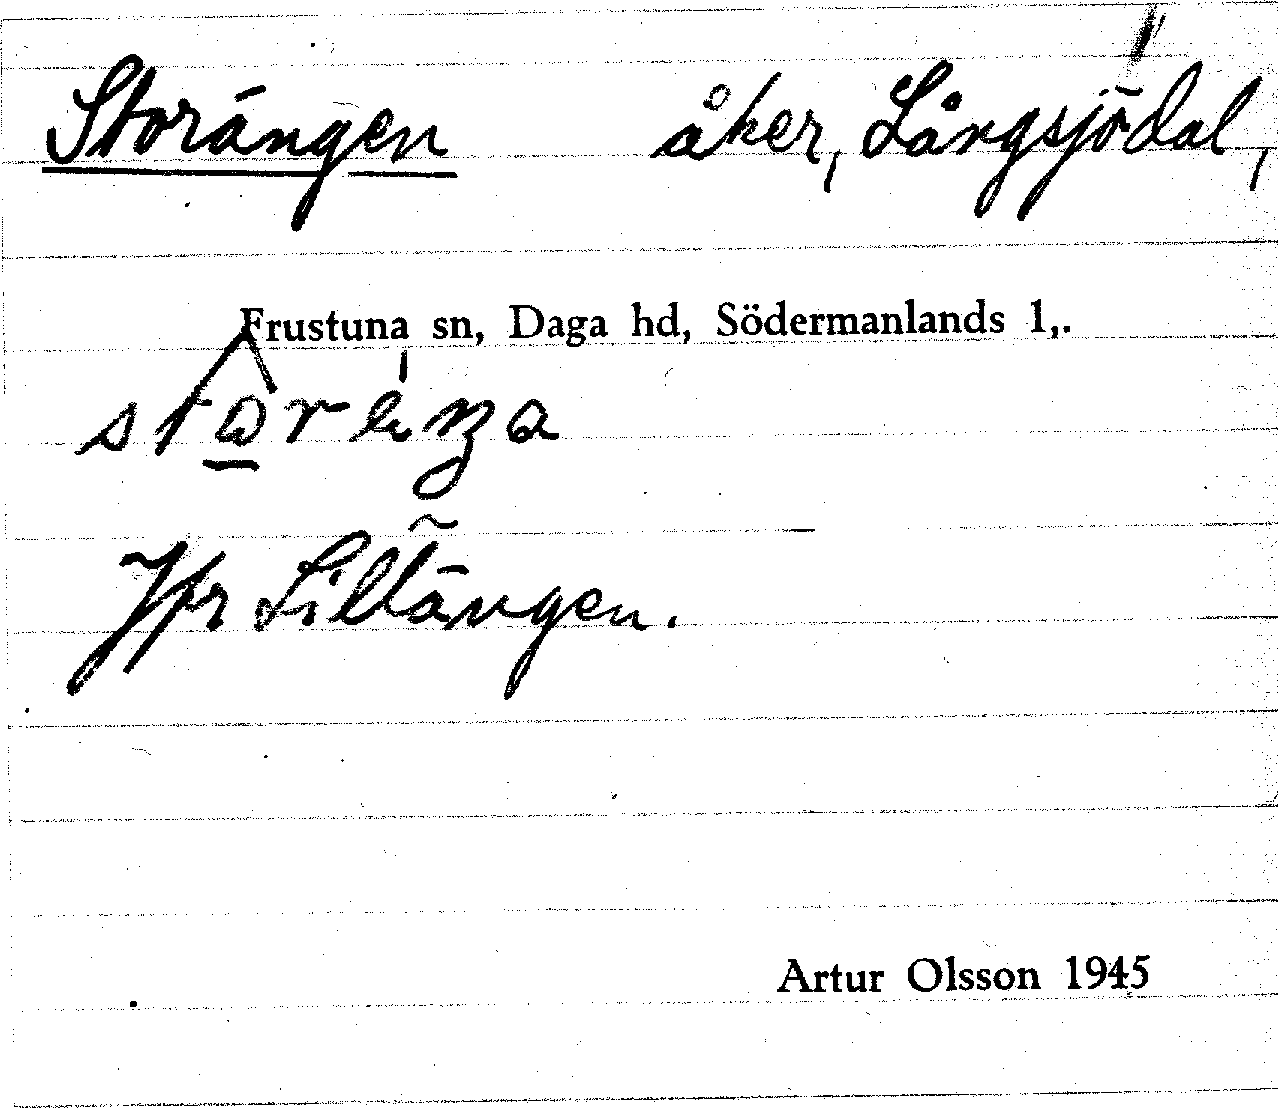 Storängen åker, Långsjödal,
Frustuna sn, Daga hd, Södermanlands l,.
Jfr Lillängen.
Artur Olsson 1945